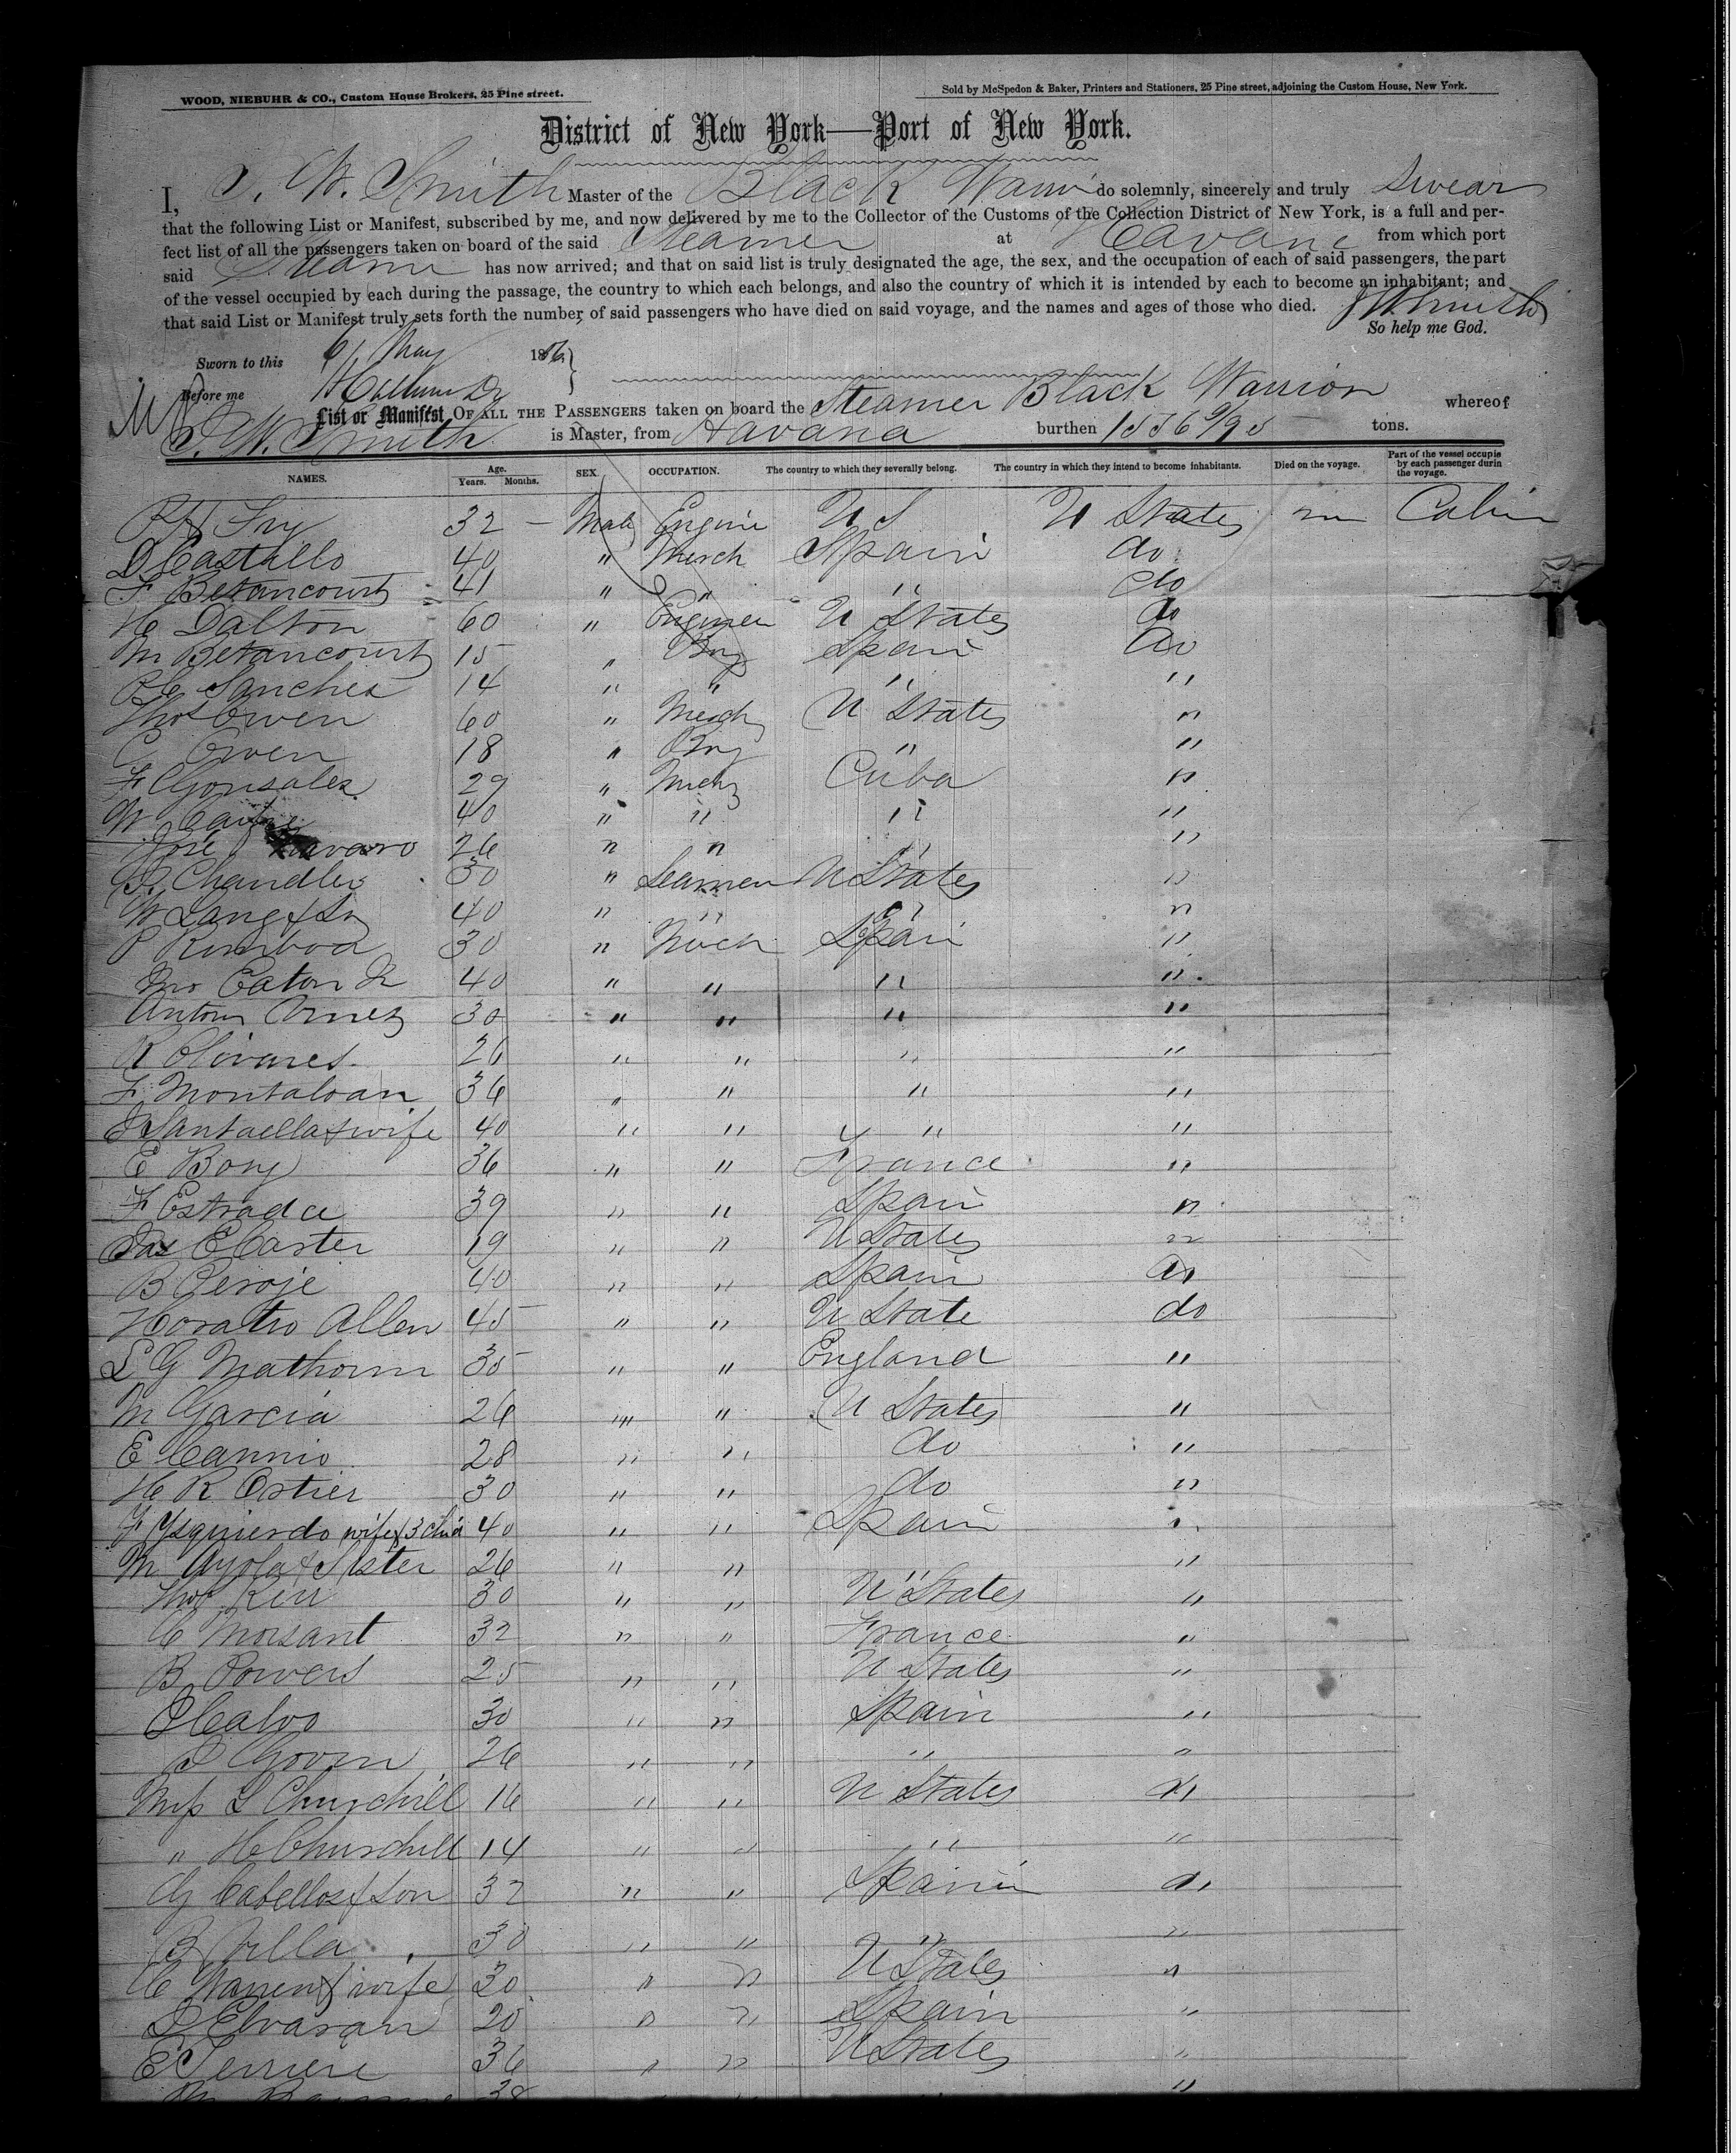 WOOD, NIEBUHR & CO., Custom House Brokers, 25 Pine street.
Sold by McSpedon & Baker, Printers and Stationers, 25 Pine street, adjoining the Custom House, New York.
District of New York—Port of New York.
I, J. W. Smith Master of the Black Warri do solemnly, sincerely and truly swear
that the following List or Manifest, subscribed by me, and now delivered by me to the Collector of the Customs of the Collection District of New York, is a full and per-
fect list of all the passengers taken on board of the said Steamer at Havana from which port
said Steamer has now arrived; and that on said list is truly designated the age, the sex, and the occupation of each of said passengers, the part
of the vessel occupied by each during the passage, the country to which each belongs, and also the country of which it is intended by each to become an inhabitant; and
that said List or Manifest truly sets forth the number of said passengers who have died on said voyage, and the names and ages of those who died. J W Smith
So help me God.
Sworn to this 6 May 1856
Before me
List or Manifest OF ALL THE PASSENGERS taken on board the Steamer Black Warrior whereof
J. W. Smith is Master, from Havana burthen tons.
NAMES. Age. Years. Months. SEX. OCCUPATION. The country to which they severally belong. The country in which they intend to become inhabitants. Died on the voyage. Part of the vessel occupie by each passenger durin the voyage.
Fry 32 — Male Engine U S U States Cabin
D Castillo 40 " Merch Spain do
F Betancourt 41 " " " do
H Dalton 60 " Engineer U States do
M Betancourt 15 " Boy Spain do
Sanchez 14 " " " "
Thos Owen 60 " Merch U States "
C Owen 18 " Boy " "
F Gonsales 29 " Merch Cuba "
W 40 " " " "
José Navaro 26 " " " "
Chandler 30 " Seamen U States "
W Lang 40 " " " "
P 30 " Merch Spain "
Eaton 40 " " " "
Anton 30 " " " "
R Olivares 26 " " " "
F Montaloan 36 " " " "
Santaella & wife 40 " " " "
E Bory 36 " " France "
F Estrada 39 " " Spain "
Jas E Carter 19 " " U States "
B Peroje 40 " " Spain do
Horatio Allen 45 " " U State do
L G Mathorm 35 " " England "
M Garcia 26 " " U States "
E Cannio 28 " " do "
H R Ostier 30 " " do "
F Ysquierdo wife & 3 chid 40 " " Spain "
M Ayola & Sister 26 " " " "
Thos Kerr 30 " " U States "
C Morsant 32 " " France "
B Powers 25 " " U States "
Calvo 30 " " Spain "
Govin 26 " " " "
Miss L Churchill 16 " " U States do
" H Churchill 14 " " " "
G Cabellos & Son 32 " " Spain do
B Villa 30 " " " "
C Warren & wife 30 " " U States "
Elvaran 20 " " Spain "
E Ferriere 36 " " U States "
38 "